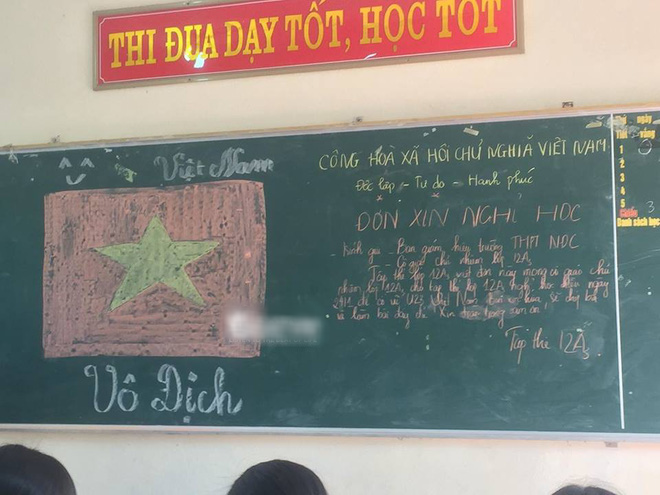 THI ĐUA DẠY TỐT, HỌC TỐT
Việt Nam
Vô Địch
CỘNG HOÀ XÃ HỘI CHỦ NGHĨA VIỆT NAM
Độc lập - Tự do - Hạnh phúc
ĐƠN XIN NGHỈ HỌC
- Kính gửi: - Ban giám hiệu trường THPT NDC
- Cô giáo chủ nhiệm lớp 12A3
Tập thể lớp 12A3 viết đơn này mong cô giáo chủ
nhiệm lớp 12A3 cho tập thể lớp 12A3 nghỉ học
để cổ vũ U23 Việt Nam
và làm bài đầy đủ. Xin
Tập thể 12A3
Thứ ngày
Tiết vắng
1
2
3
4
5
Danh sách học